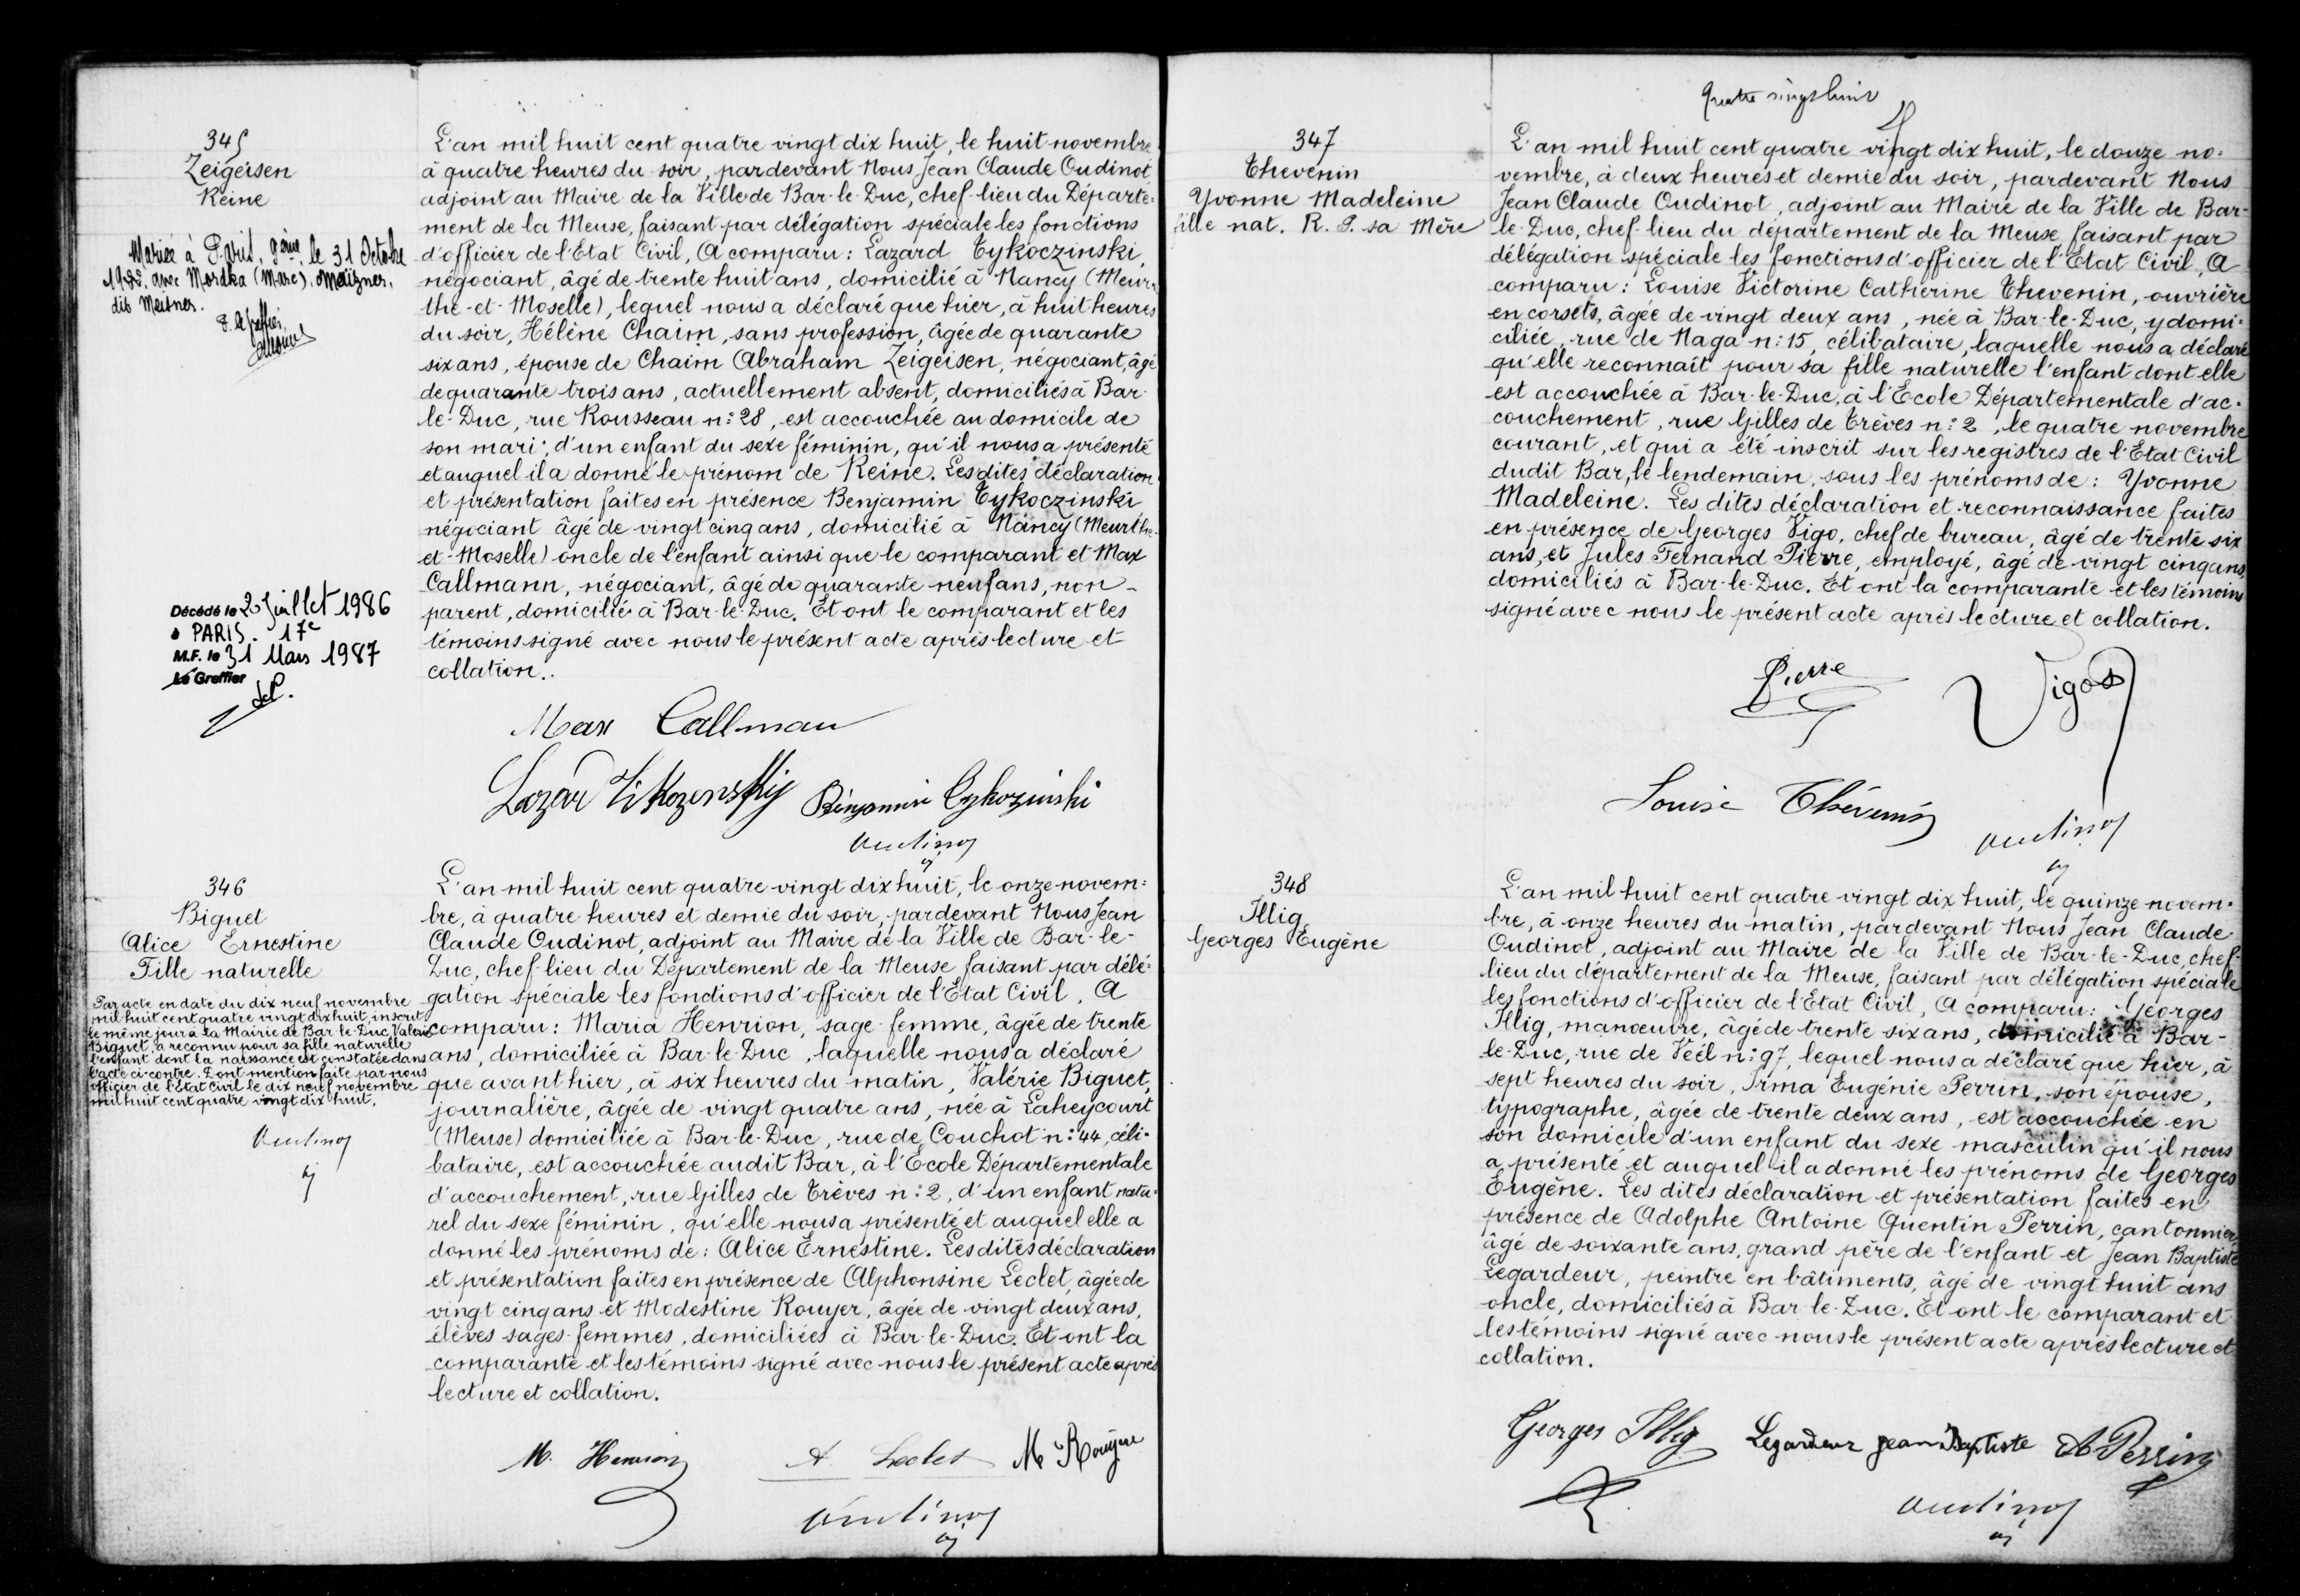 345
Zeigeisen
Reine
Mariée à Paris, 9ème, le 31 Octobre
avec Mordka (Marc), Meizner,
dit Meisner.
P. le greffier
Décédé le 20 Juillet 1986
à PARIS. 17e
M.F. le 31 Mars 1987
Le Greffier
L'an mil huit cent quatre vingt dix huit, le huit novembre
à quatre heures du soir, pardevant Nous Jean Claude Oudinot
adjoint au Maire de la Ville de Bar-le-Duc, chef-lieu du Départe=
ment de la Meuse, faisant par délégation spéciale les fonctions
d'officier de l'Etat Civil, A comparu: Lazard Tykoczinski,
négociant, âgé de trente huit ans, domicilié à Nancy (Meur=
the-et-Moselle), lequel nous a déclaré que hier, à huit heures
du soir, Hélène Chaim, sans profession, âgée de quarante
six ans, épouse de Chaim Abraham Zeigeisen, négociant, âgé
de quarante trois ans, actuellement absent, domiciliés à Bar-
le-Duc, rue Rousseau n: 28, est accouchée au domicile de
son mari, d'un enfant du sexe féminin, qu'il nous a présenté
et auquel il a donné le prénom de Reine. Les dites déclaration
et présentation faites en présence Benjamin Tykoczinski
négociant âgé de vingt cinq ans, domicilié à Nancy (Meurthe-
et-Moselle) oncle de l'enfant ainsi que le comparant et Max
Callmann, négociant, âgé de quarante neuf ans, non-
parent, domicilié à Bar-le-Duc. Et ont le comparant et les
témoins signé avec nous le présent acte après lecture et
collation.
Max Callman
Lazar Tikozenskij Benjamin Tykozinski
Oudinot
346
Biguet
Alice Ernestine
Fille naturelle
Par acte en date du dix neuf novembre
mil huit cent quatre vingt dix huit, inscrit
le même jour à la Mairie de Bar-le-Duc, Valérie
Biguet, a reconnu pour sa fille naturelle
l'enfant dont la naissance est constatée dans
l'acte ci-contre. Dont mention faite par nous
officier de l'Etat Civil le dix neuf novembre
mil huit cent quatre vingt dix huit.
Oudinot
L'an mil huit cent quatre-vingt dix huit, le onze novem=
bre, à quatre heures et demie du soir, pardevant Nous Jean
Claude Oudinot, adjoint au Maire de la Ville de Bar-le-
Duc, chef-lieu du Département de la Meuse faisant par délé=
gation spéciale les fonctions d'officier de l'Etat Civil, A
comparu: Maria Henrion, sage-femme, âgée de trente
ans, domiciliée à Bar-le-Duc, laquelle nous a déclaré
que avant hier, à six heures du matin, Valérie Biguet,
journalière, âgée de vingt quatre ans, née à Laheycourt
(Meuse) domiciliée à Bar-le-Duc, rue de Couchot n: 44, céli=
bataire, est accouchée audit Bar, à l'Ecole Départementale
d'accouchement, rue Gilles de Trèves n: 2, d'un enfant natu=
rel du sexe féminin, qu'elle nous a présenté et auquel elle a
donné les prénoms de: Alice Ernestine. Les dites déclaration
et présentation faites en présence de Alphonsine Leclet, âgée de
vingt cinq ans et Modestine Rouyer, âgée de vingt deux ans,
élèves sages-femmes, domiciliées à Bar-le-Duc. Et ont la
comparante et les témoins signé avec nous le présent acte après
lecture et collation.
M. Henrion A Leclet M Rouyer
Oudinot
Quatre vingt huit
347
Thevenin
Yvonne Madeleine
fille nat. R. P. sa Mère
L'an mil huit cent quatre vingt dix huit, le douze no=
vembre, à deux heures et demie du soir, pardevant Nous
Jean Claude Oudinot, adjoint au Maire de la Ville de Bar-
le-Duc, chef-lieu du département de la Meuse, faisant par
délégation spéciale les fonctions d'officier de l'Etat Civil, A
comparu: Louise Victorine Catherine Thevenin, ouvrière
en corsets, âgée de vingt deux ans, née à Bar-le-Duc, y domi=
ciliée, rue de Naga n: 15, célibataire, laquelle nous a déclaré
qu'elle reconnaît pour sa fille naturelle l'enfant dont elle
est accouchée à Bar-le-Duc, à l'Ecole Départementale d'ac=
couchement, rue Gilles de Trèves n: 2, le quatre novembre
courant, et qui a été inscrit sur les registres de l'Etat Civil
dudit Bar, le lendemain, sous les prénoms de: Yvonne
Madeleine. Les dites déclaration et reconnaissance faites
en présence de Georges Vigo, chef de bureau, âgé de trente six
ans, et Jules Fernand Pierre, employé, âgé de vingt cinq ans,
domiciliés à Bar-le-Duc. Et ont la comparante et les témoins
signé avec nous le présent acte après lecture et collation.
Pierre Vigo
Louise Thévenin
Oudinot
348
Illig
Georges Eugène
L'an mil huit cent quatre vingt dix huit, le quinze novem=
bre, à onze heures du matin, pardevant Nous Jean Claude
Oudinot, adjoint au Maire de la Ville de Bar-le-Duc, chef-
lieu du département de la Meuse, faisant par délégation spéciale
les fonctions d'officier de l'Etat Civil, A comparu: Georges
Illig, manœuvre, âgé de trente six ans, domicilié à Bar-
le-Duc, rue de Véel n: 97, lequel nous a déclaré que hier, à
sept heures du soir, Irma Eugénie Perrin, son épouse,
typographe, âgée de trente deux ans, est accouchée en
son domicile d'un enfant du sexe masculin qu'il nous
a présenté et auquel il a donné les prénoms de Georges
Eugène. Les dites déclaration et présentation faites en
présence de Adolphe Antoine Quentin Perrin, cantonnier,
âgé de soixante ans, grand père de l'enfant et Jean Baptiste
Legardeur, peintre en bâtiments, âgé de vingt huit ans
oncle, domiciliés à Bar-le-Duc. Et ont le comparant et
les témoins signé avec nous le présent acte après lecture et
collation.
Georges Illig Legardeur Jean Baptiste A Perrin
Oudinot